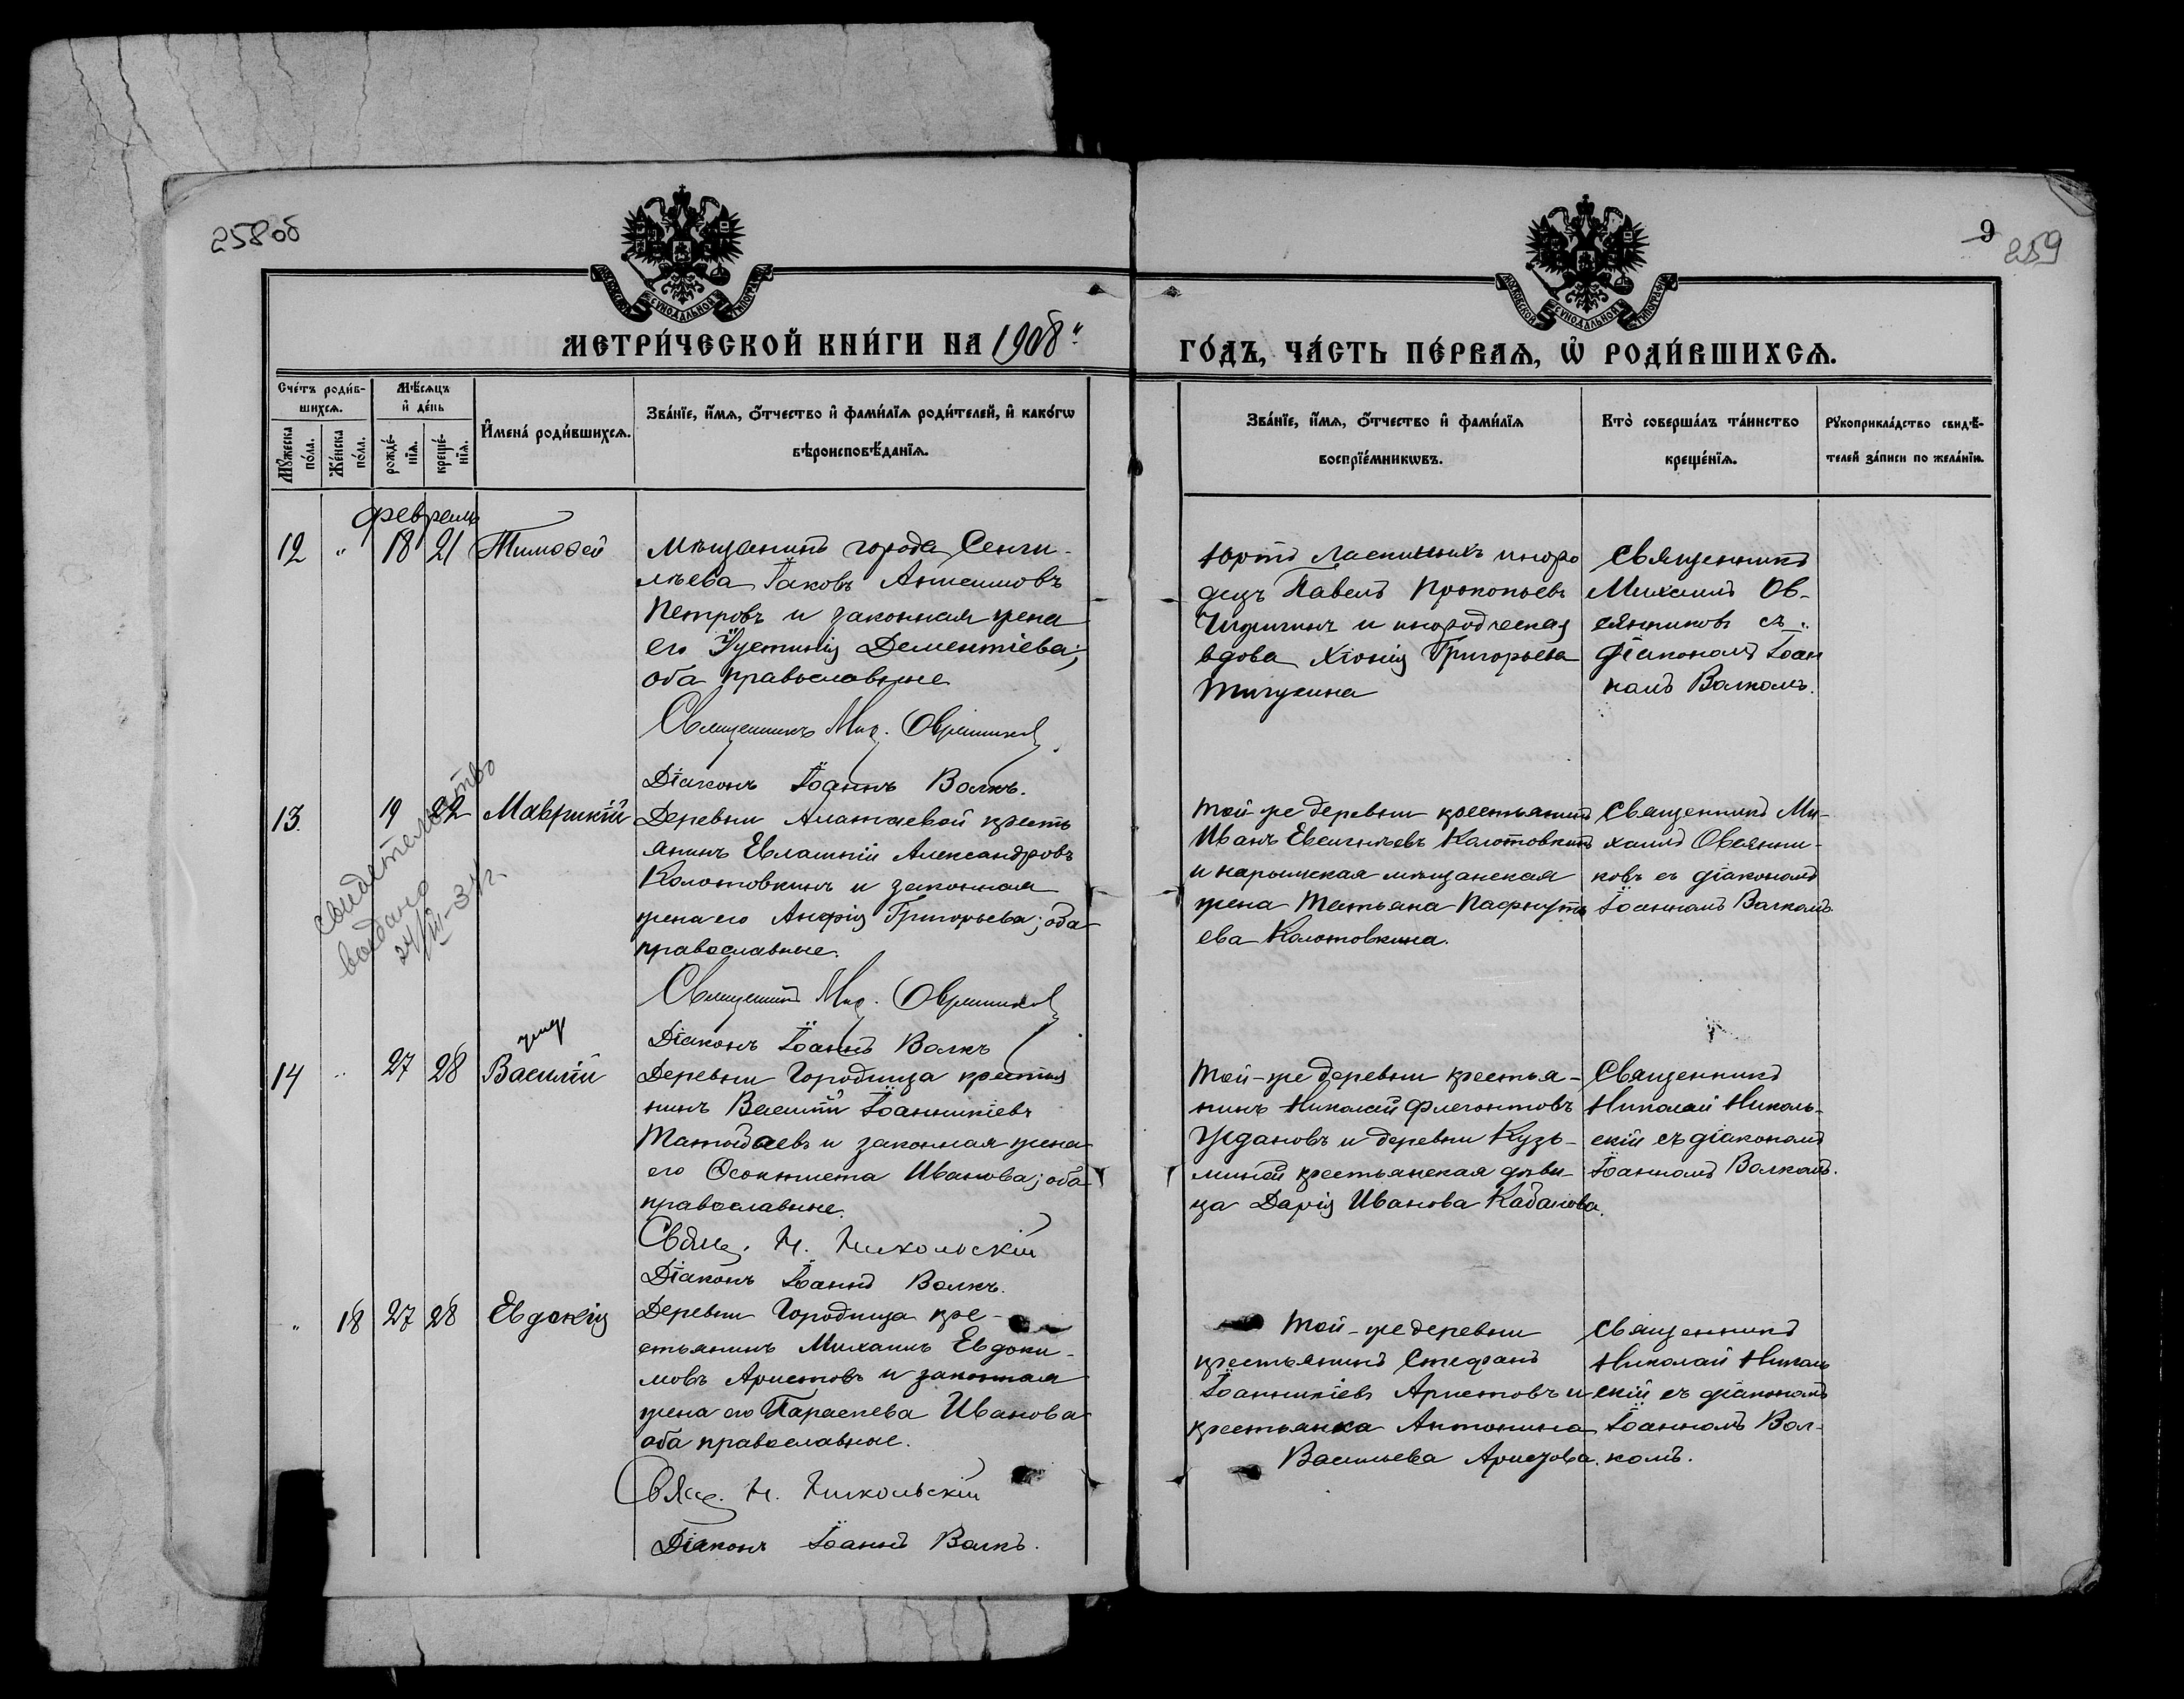 258об
9
259
МОСКОВСКОЙ СѴНОДАЛЬНОЙ ТИПОГРАФІИ
МОСКОВСКОЙ СѴНОДАЛЬНОЙ ТИПОГРАФІИ
МЕТРИ́ЧЕСКОЙ КНИ́ГИ НА 1908й
ГО́ДЪ, ЧА́СТЬ ПЕ́РВАѦ, Ѽ РОДИ́ВШИХСѦ.
Сче́тъ роди́в-
шихсѧ.
Мꙋ́жеска по́ла.
Же́нска по́ла.
Мѣ́сѧцъ
и де́нь
рожде́-
нїѧ.
креще́-
нїѧ.
Имена́ роди́вшихсѧ.
Зва́нїе, и́мѧ, ѻ́тчество и фами́лїѧ роди́телей, и како́гѡ
вѣроисповѣ́данїѧ.
Зва́нїе, и́мѧ, ѻ́тчество и фами́лїѧ
воспрїе́мникѡвъ.
Кто̀ соверша́лъ та́инство
креще́нїѧ.
Рꙋкоприкла́дство свидѣ́-
телей за́писи по жела́нїю.
Февраль
12 " 18 21 Тимоѳей
Мѣщанинъ города Сенги-
лѣева Іаковъ Анисимовъ
Петровъ и законная жена
его Іустинія Дементіева;
оба православные
Священникъ Мих. Овсянниковъ
Діаконъ Іоаннъ Волкъ.
Юртъ иноро
децъ Павелъ Прокопьевъ
и инородческая
вдова Хіонія Григорьева
Тигукина
Священникъ
Михаилъ Ов-
сянниковъ съ
діакономъ Іоан
номъ Волкомъ.
13. 19 22 Маврикій
Деревни Алатаевой кресть
янинъ Евлампій Александровъ
Колотовкинъ и законная
жена его Анфія Григорьева; оба
православные.
Священникъ Мих. Овсянниковъ
Діаконъ Іоаннъ Волкъ
Той-же деревни крестьянинъ
Иванъ Евсигнѣевъ Колотовкинъ
и нарымская мѣщанская
жена Татьяна Пафнуть
ева Колотовкина.
Священникъ Ми-
хаилъ Овсянни-
ковъ съ діакономъ
Іоанномъ Волкомъ.
свидетельство
выдано
24/III-31г.
умер
14 " 27 28 Василій
Деревни Городища крестья
нинъ Василій Іоанникіевъ
и законная жена
его Ѳеоктиста Иванова; оба
православные.
Свящ. Н. Никольскій
Діаконъ Іоаннъ Волкъ.
Той-же деревни крестья-
нинъ Николай Флегонтовъ
Ждановъ и деревни Кузь-
миной крестьянская дѣви-
ца Дарія Иванова Кабанова.
Священникъ
Николай Николь-
скій съ діакономъ
Іоанномъ Волкомъ.
" 18 27 28 Евдокія
Деревни Городища кре-
стьянинъ Михаилъ Евдоки-
мовъ Аристовъ и законная
жена его Параскева Иванова
оба православные.
Свящ. Н. Никольскій
Діаконъ Іоаннъ Волкъ.
Той-же деревни
крестьянинъ Стефанъ
Іоанникіевъ Аристовъ и
крестьянка Антонина
Васильева Аристова.
Священникъ
Николай Николь
скій съ діакономъ
Іоанномъ Вол-
комъ.